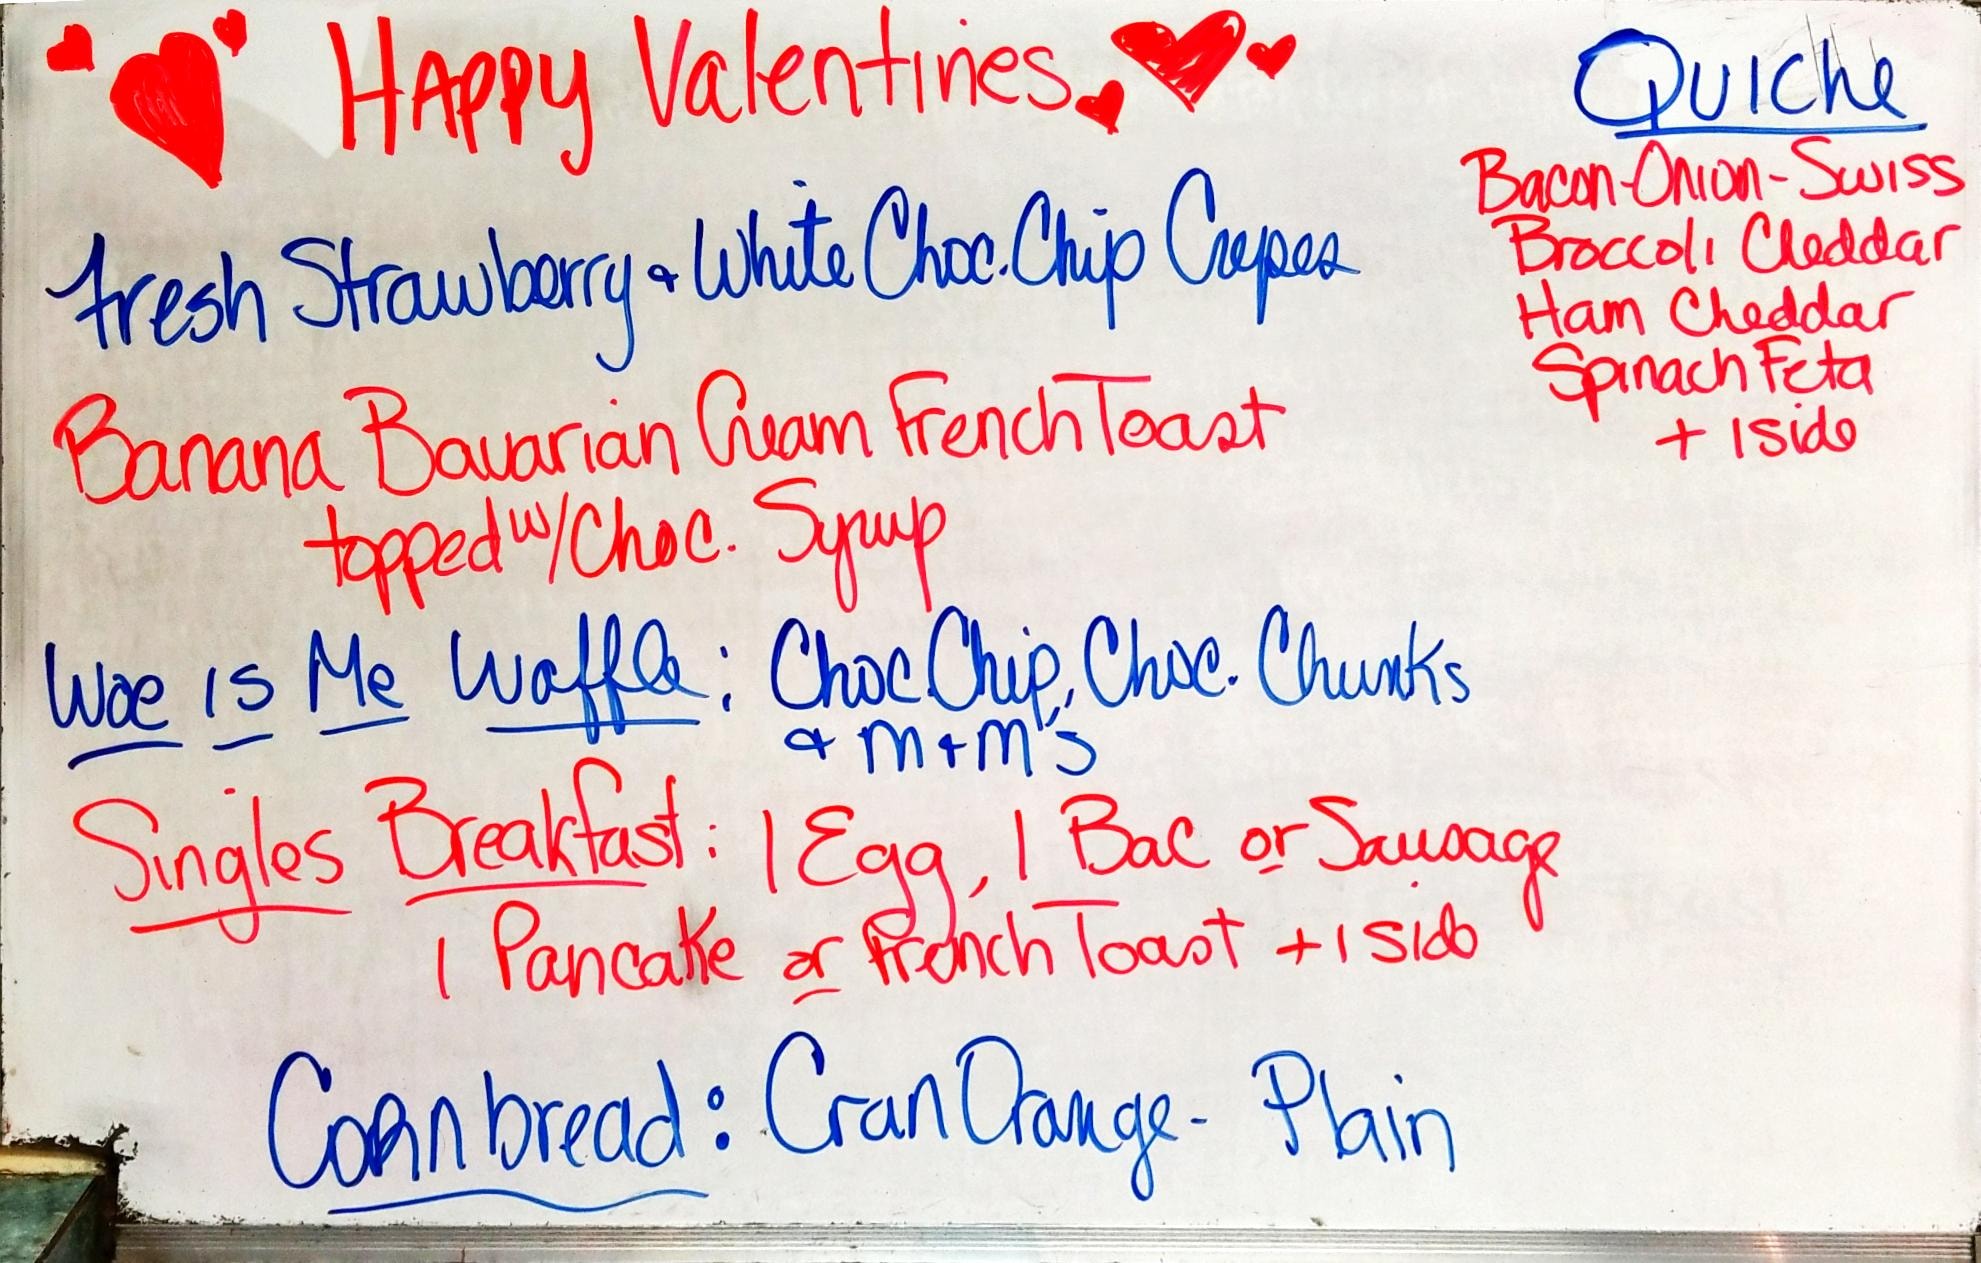 Happy Valentines
Fresh Strawberry & White Choc. Chip Crepes
Banana Bavarian Cream French Toast
topped w/Choc. Syrup
Woe is Me Waffle: Choc. Chip, Choc. Chunks
& M+M's
Singles Breakfast: 1 Egg, 1 Bac or Sausage
1 Pancake or French Toast + 1 side
Cornbread: Cran Orange - Plain
Quiche
Bacon-Onion-Swiss
Broccoli Cheddar
Ham Cheddar
Spinach Feta
+ 1 side